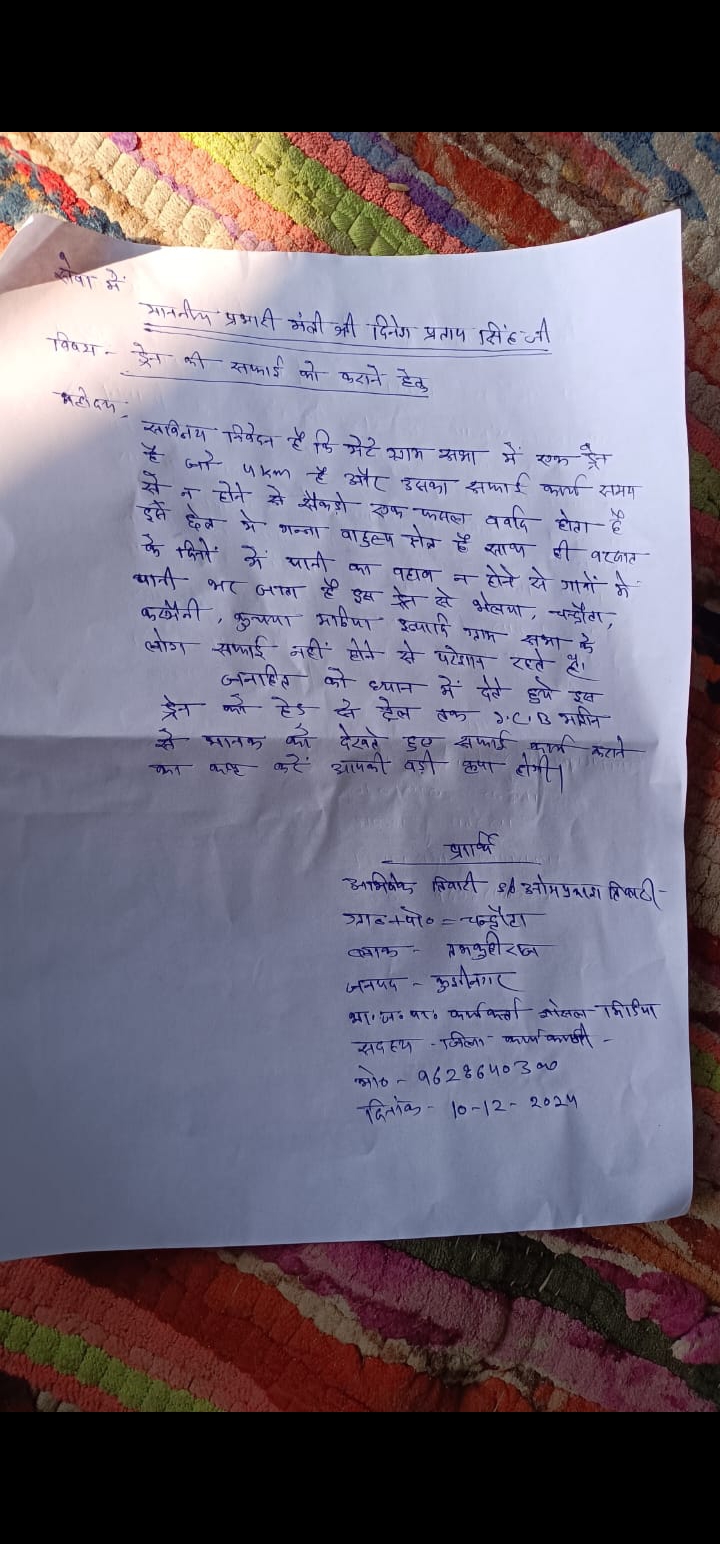 सेवा में
माननीय प्रभारी मंत्री श्री दिनेश प्रताप सिंह जी
विषय - ड्रेन की सफाई को कराने हेतु
महोदय,
सविनय निवेदन है कि मेरे ग्राम सभा में एक ड्रेन
है जो 4 km है और उसका सफाई कार्य समय
से न होने से सैकड़ो एक फसल बर्बाद होता है
गन्ना बाहुल्य है साथ ही बरसात
के दिनों में पानी का बहाव न होने से गावों में
पानी भर जाता है इस ड्रेन से भेलया, चन्द्रौटा,
इत्यादि ग्राम सभा के
लोग सफाई नहीं होने से परेशान रहते है।
जनहित को ध्यान में देते हुये इस
ड्रेन को हेड से टेल तक J.C.B मशिन
से मानक को देखते हुए सफाई कार्य कराने
का कष्ट करें आपकी बड़ी कृपा होगी।
प्रार्थि
अभिषेक तिवारी s/o ओमप्रकाश तिवारी -
ग्रा०+पो० = चन्द्रौटा
ब्लाक - तमकुहीराज
जनपद - कुशीनगर
भा.ज.पा. कार्यकर्ता सोसल मिडिया
सदस्य - जिला - कार्यकारणी -
मो० - 9628640300
दिनांक - 10-12-2024